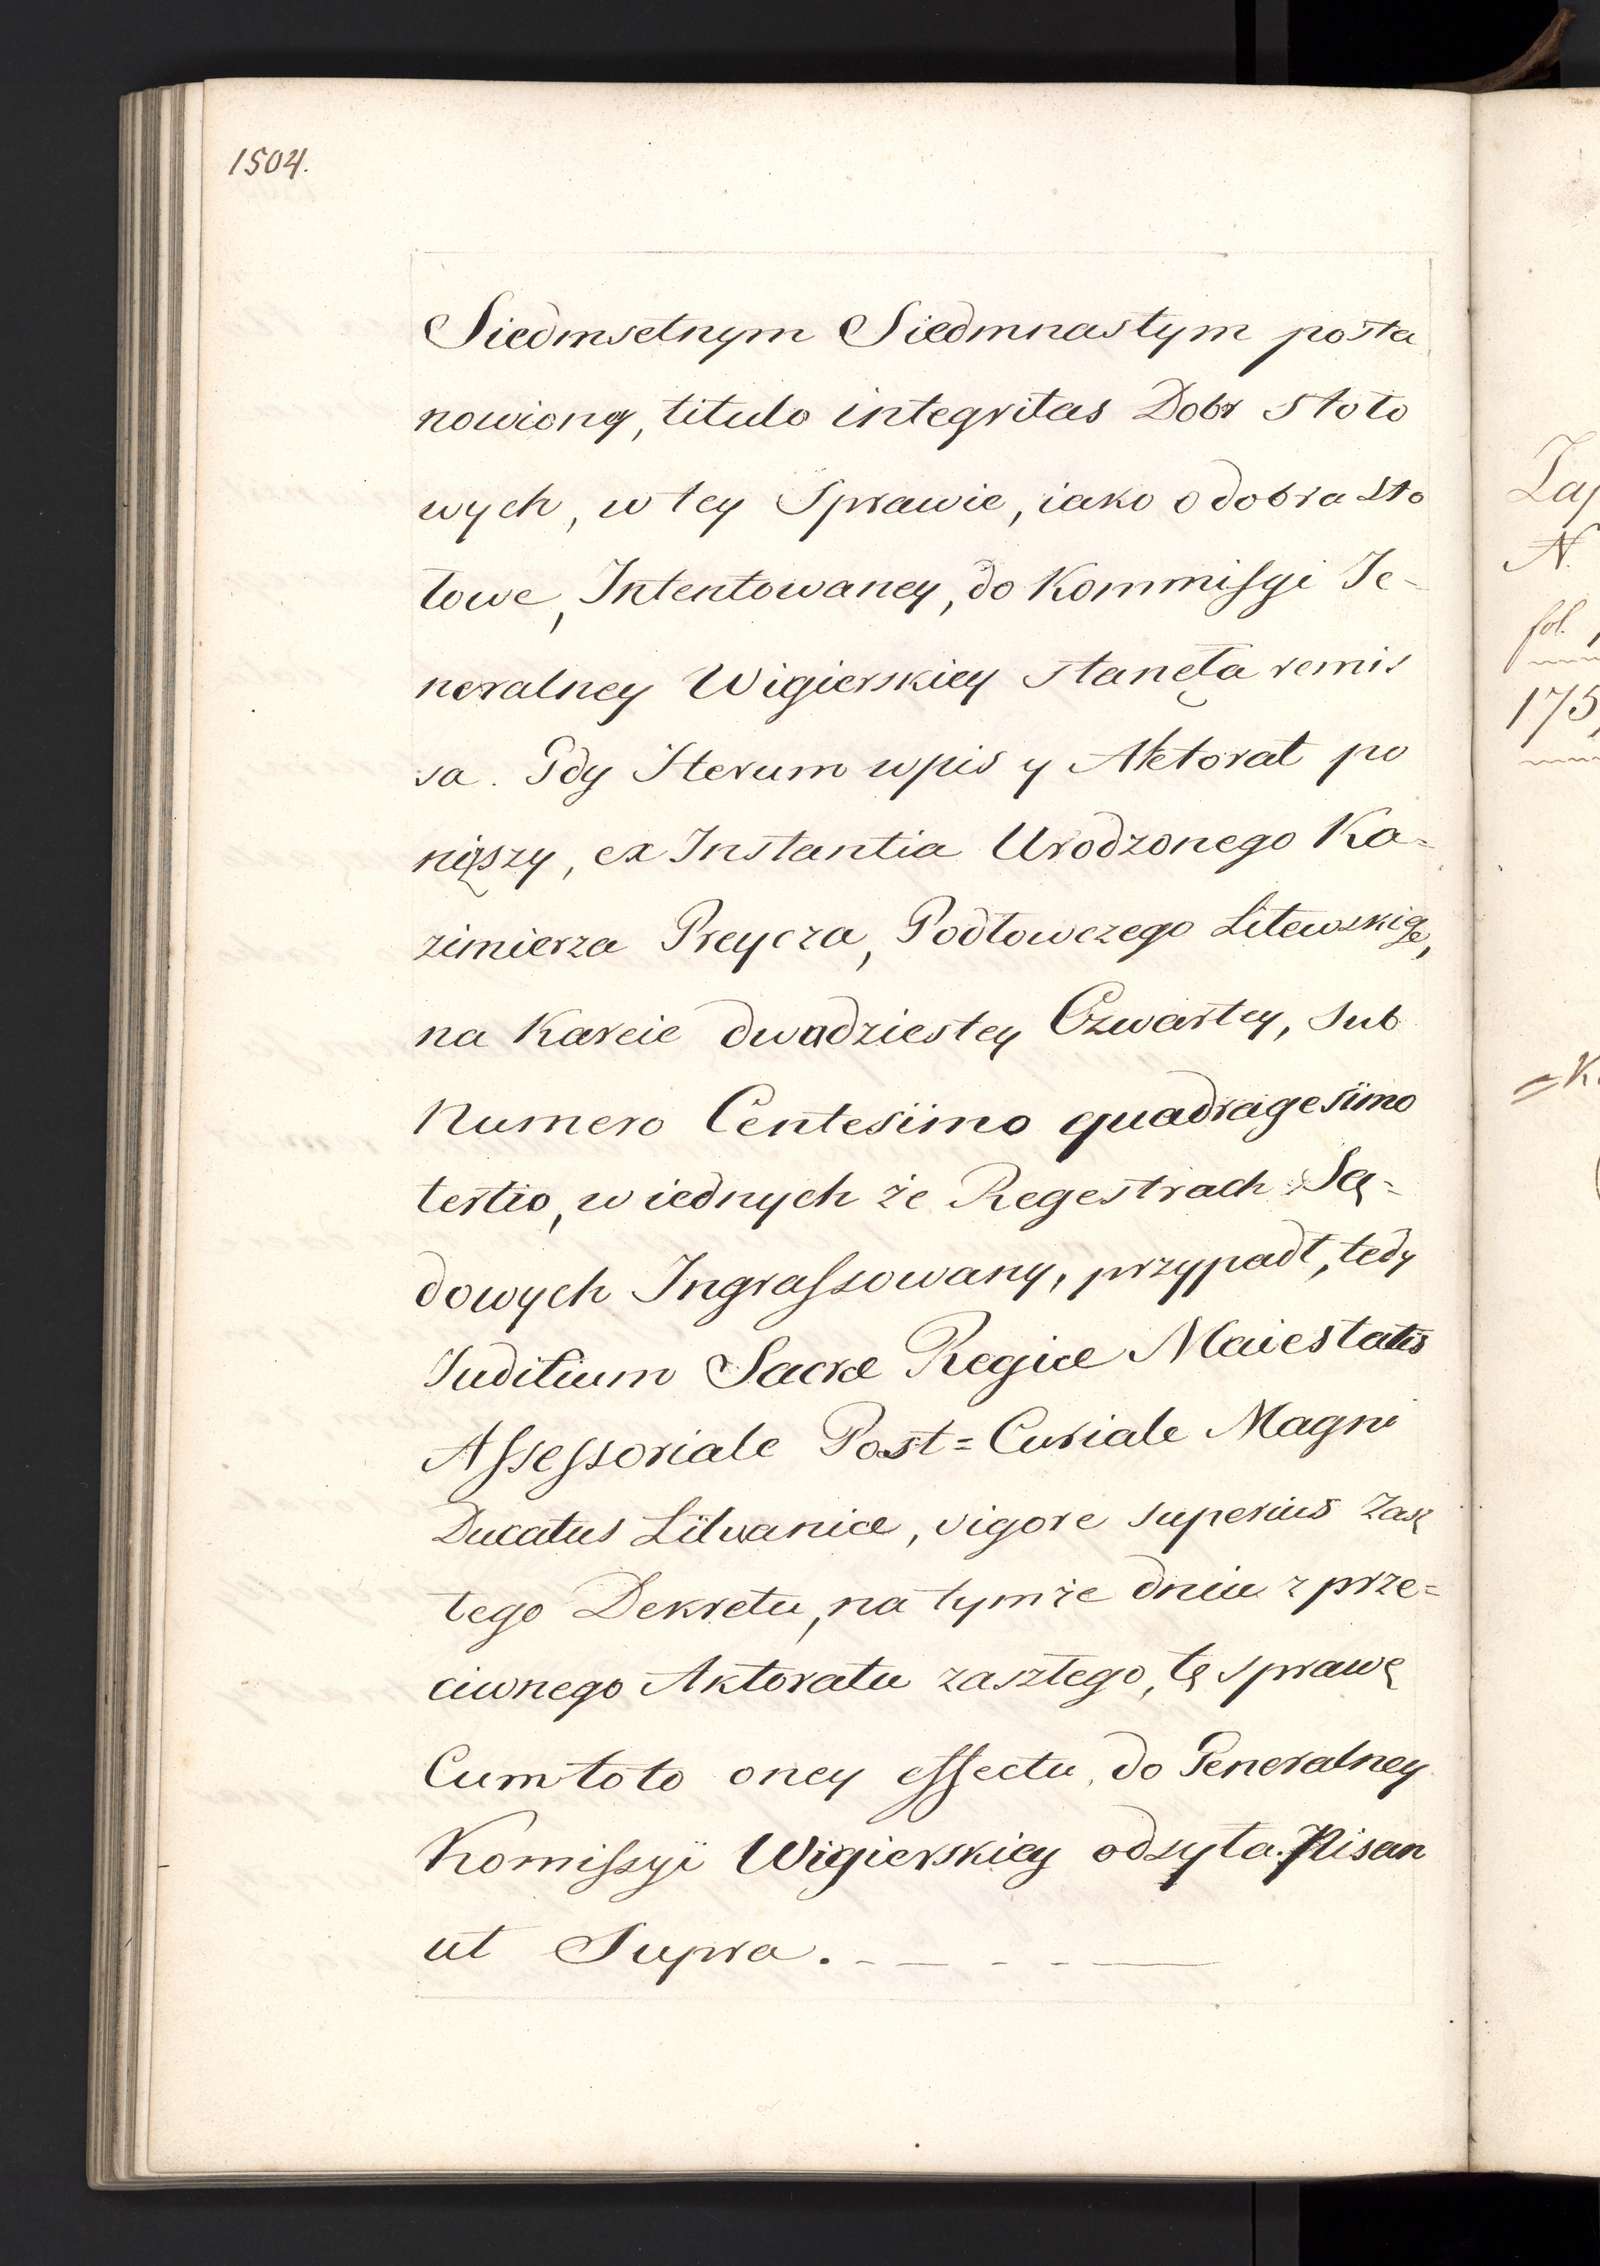 1504.
Siedmsetnym Siedmnastym posta
nowioną, titulo integritas Dobr Stoło
wych, w tey Sprawie, iako o dobra Sto
łowe, Intentowaney, do Kommissyi Je-
neralney Wigierskiey stanęła remis
sa. Gdy Iterum wpis y Aktorat po
nięszy, ex Instantia Urodzonego Ka=
zimierza Preycza, Podłowczego Litewskigo,
na Karcie dwadziestey Czwartey, Sub
Numero Centesimo quadragesimo
tertio, w iednych że Regestrach Są=
dowych Ingrassowany, przypadł, tedy
Juditium Sacræ Regiæ Maiestatis
Assessoriale Post=Curiale Magni
Ducatus Litvaniæ, vigore superius Zasz
tego Dekretu, na tymże dniu z prze=
ciwnego Aktoratu zaszłego, tę sprawę
Cum toto oney effectu, do Generalney
Komissyi Wigierskiey odsyła. Pisan
ut Supra.
Zap
N.
fol.
175
=K.